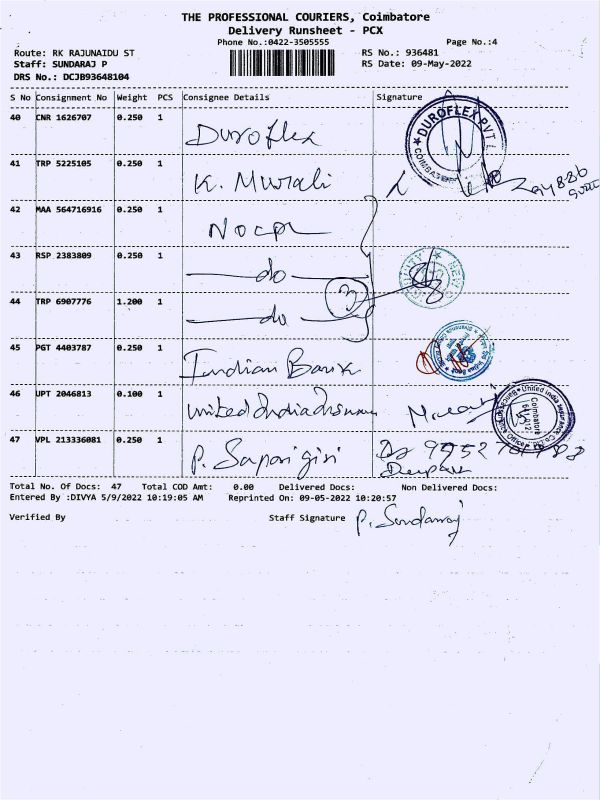 THE PROFESSIONAL COURIERS, Coimbatore
Delivery Runsheet - PCX
Phone No.:0422-3505555 Page No.:4
Route: RK RAJUNAIDU ST RS No.: 936481
Staff: SUNDARAJ P RS Date: 09-May-2022
DRS No.: DCJB93648104
S No Consignment No Weight PCS Consignee Details Signature
40 CNR 1626707 0.250 1 Duroflex
DUROFLEX PVT L
41 TRP 5225105 0.250 1 K. Murali
42 MAA 564716916 0.250 1
43 RSP 2383809 0.250 1 do
44 TRP 6907776 1.200 1 do
3
45 PGT 4403787 0.250 1 Indian Bank
46 UPT 2046813 0.100 1 United India
United India Insurance Co
Coimbatore
47 VPL 213336081 0.250 1 P. Saparigiri
Total No. Of Docs: 47 Total COD Amt: 0.00 Delivered Docs: Non Delivered Docs:
Entered By :DIVYA 5/9/2022 10:19:05 AM Reprinted On: 09-05-2022 10:20:57
Verified By Staff Signature P. Sundarraj